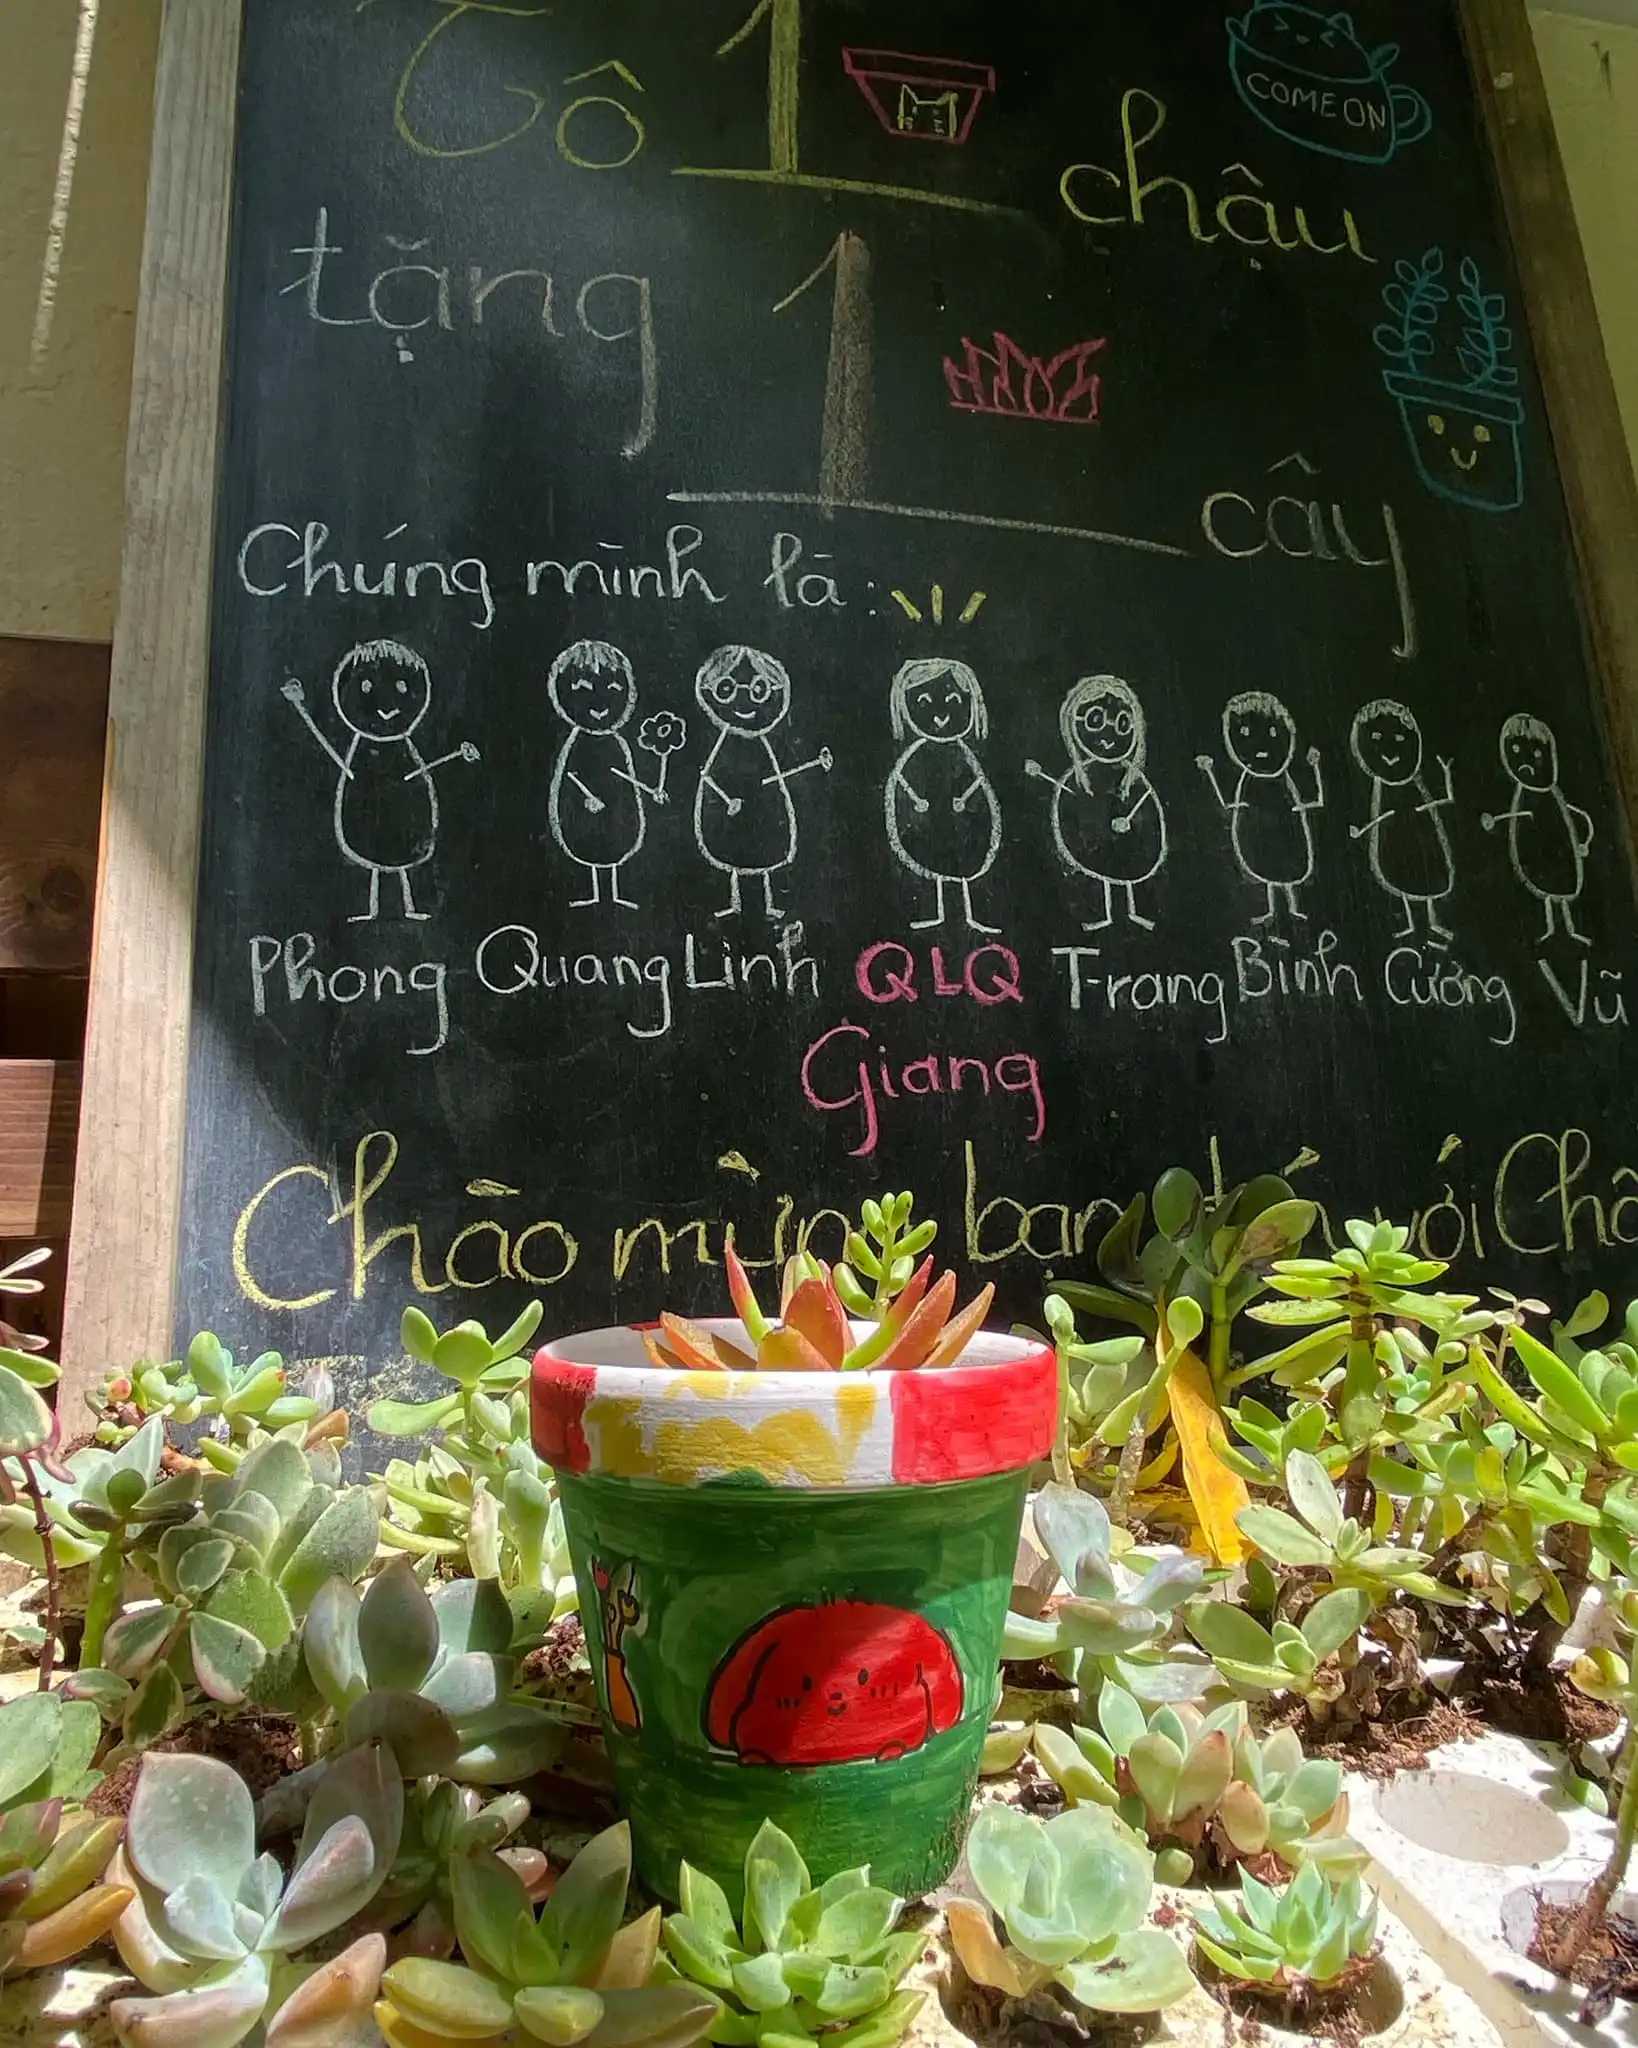 Tô 1 chậu
COME ON
tặng 1 cây
Chúng mình là:
Phong Quang Linh QLQ Trang Bình Cường Vũ
Giang
Chào mừng bạn với